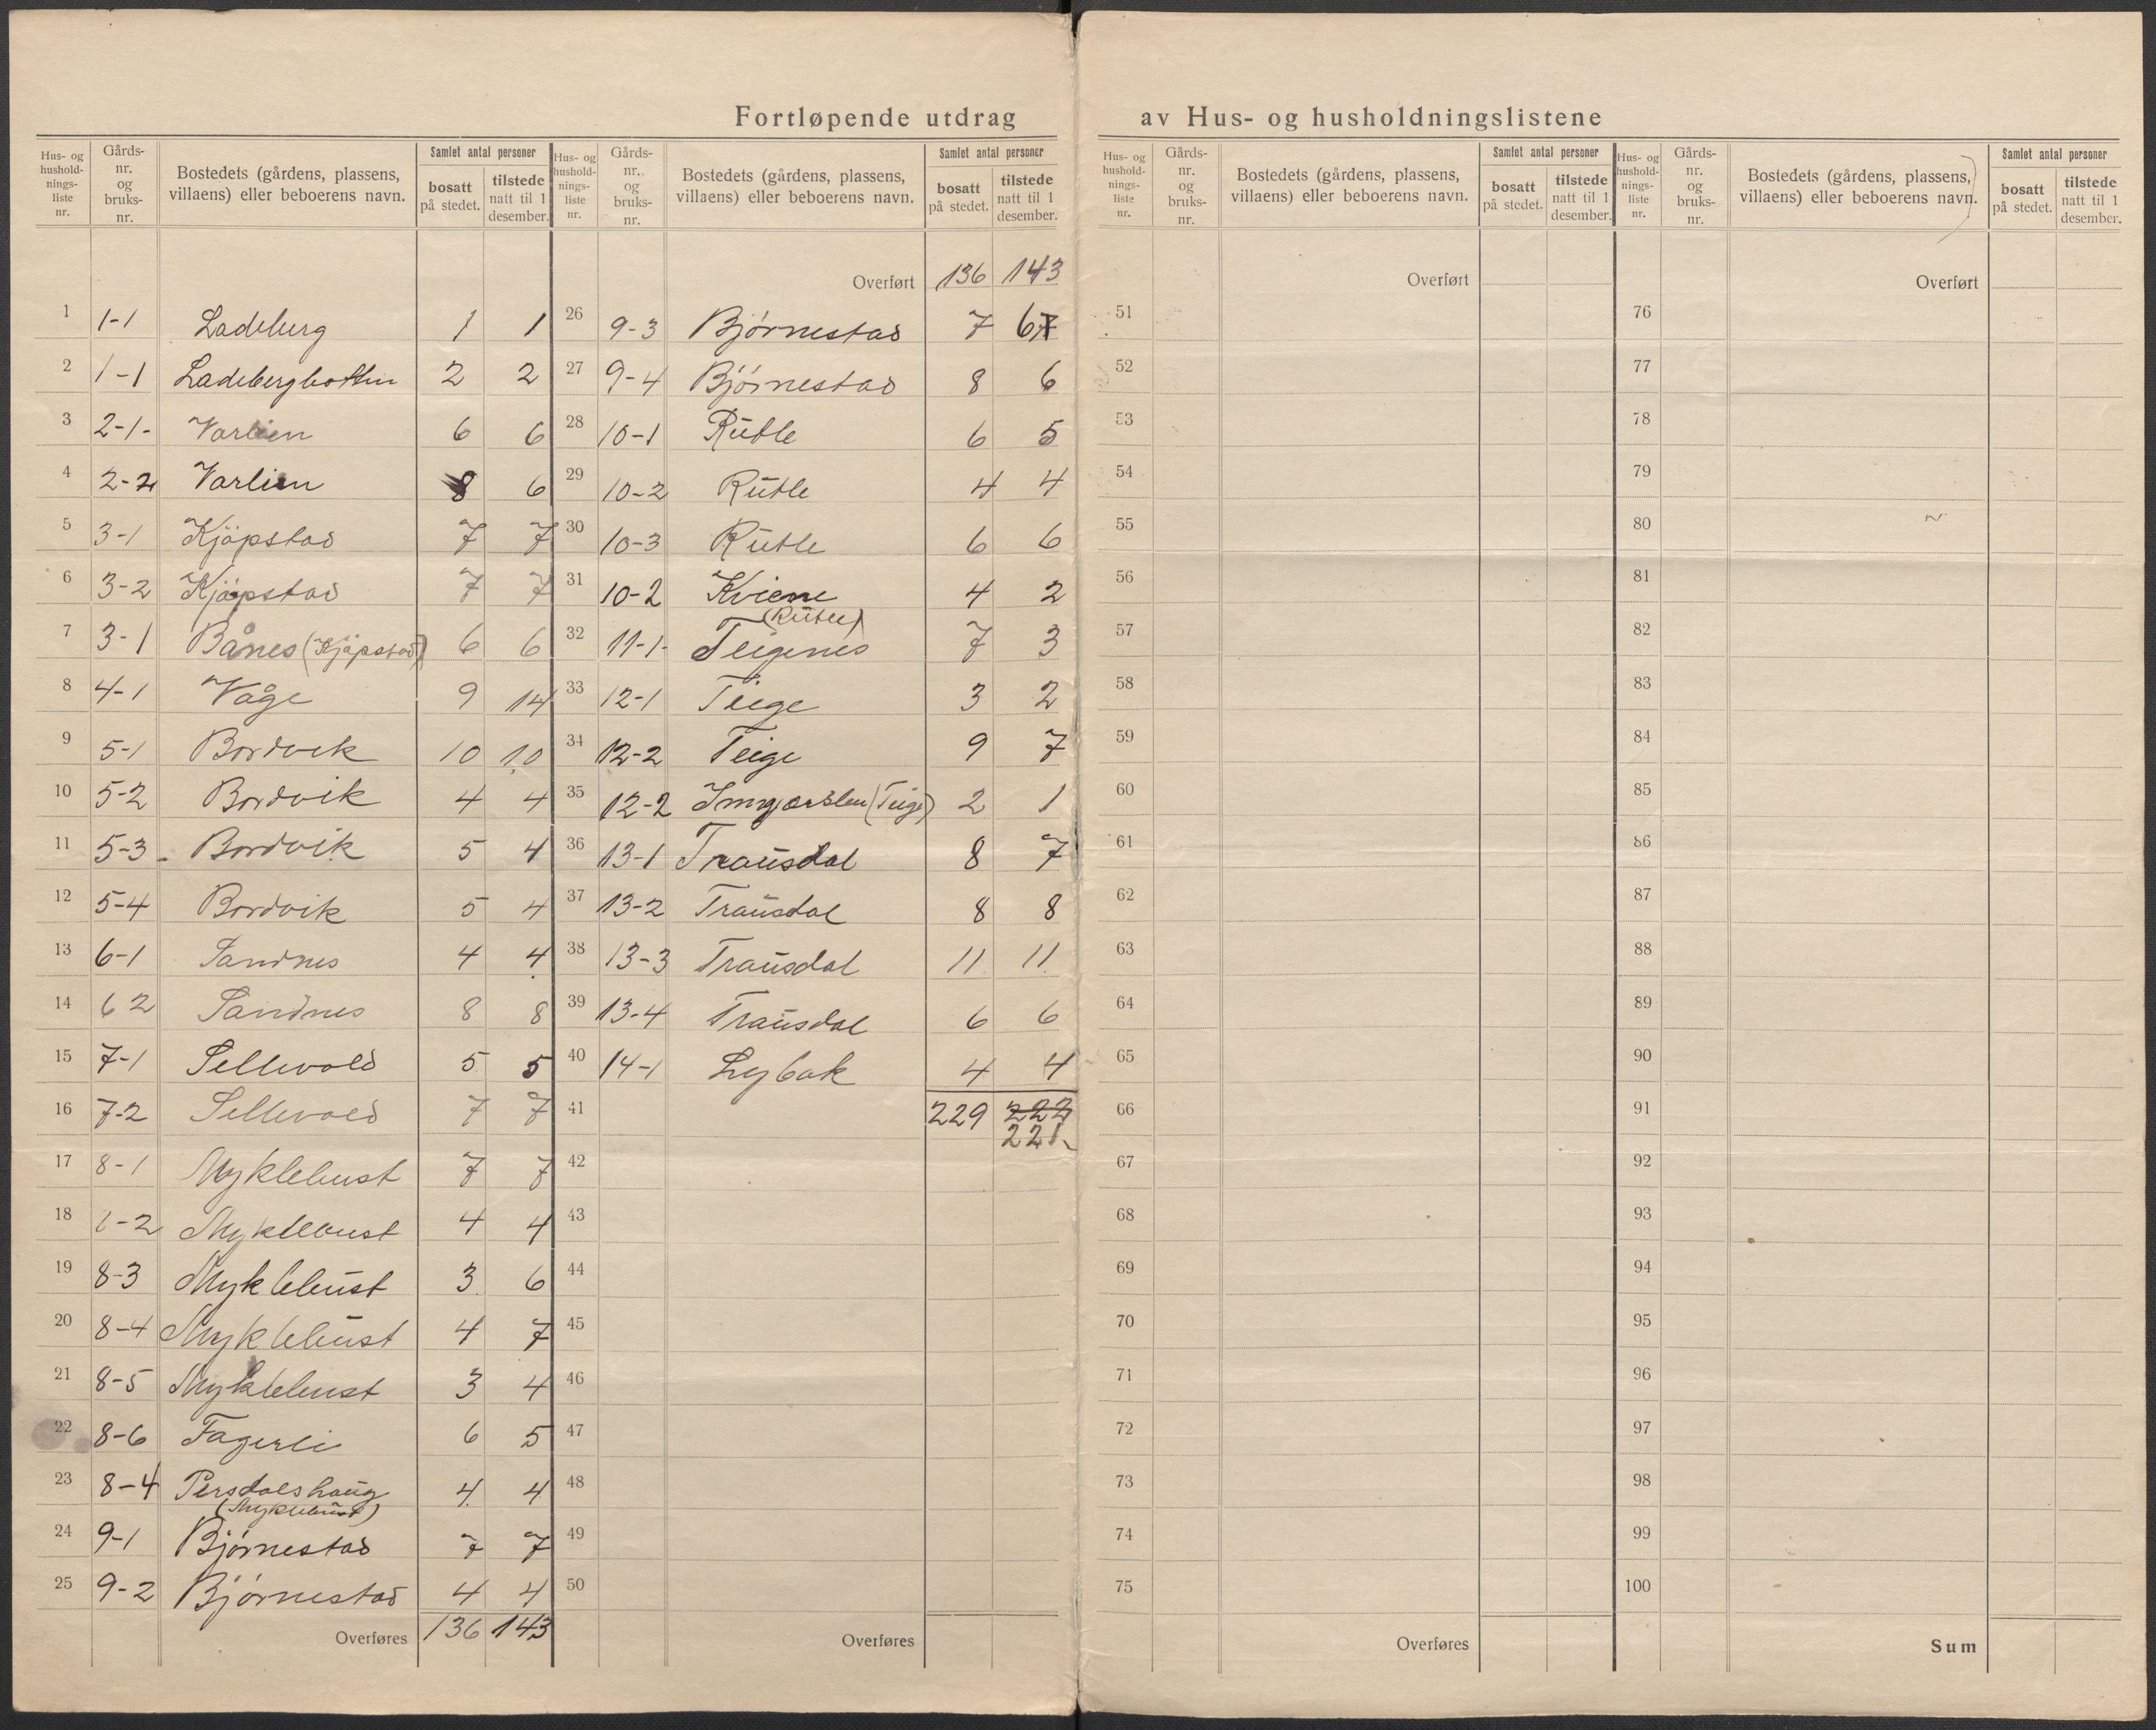 Fortløpende utdrag av Hus- og husholdningslistene
Hus- og hushold-nings-liste nr. Gårds-nr. og bruks-nr. Bostedets (gårdens, plassens, villaens) eller beboerens navn. Samlet antal personer bosatt på stedet. tilstede natt til 1 desember.
1 1-1 Ladeberg 1 1
2 1-1 Ladebergbotten 2 2
3 2-1- Varlien 6 6
4 2-2 Varlien 8 6
5 3-1 Kjøpstad 7 7
6 3-2 Kjøpstad 7 7
7 3-1 Bånes (Kjøpstad) 6 6
8 4-1 Våge 9 14
9 5-1 Bordvik 10 10
10 5-2 Bordvik 4 4
11 5-3 Bordvik 5 4
12 5-4 Bordvik 5 4
13 6-1 Sandnes 4 4
14 6 2 Sandnes 8 8
15 7-1 Sellevold 5 5
16 7-2 Sellevold 7 7
17 8-1 Myklebust 7 7
18 8-2 Myklebust 4 4
19 8-3 Myklebust 3 6
20 8-4 Myklebust 4 7
21 8-5 Myklebust 3 4
22 8-6 Fagerli 6 5
23 8-4 Persdalshaug (Myklebust) 4 4
24 9-1 Bjørnestad 7 7
25 9-2 Bjørnestad 4 4
Overføres 136 143
Hus- og hushold-nings-liste nr. Gårds-nr. og bruks-nr. Bostedets (gårdens, plassens, villaens) eller beboerens navn. Samlet antal personer bosatt på stedet. tilstede natt til 1 desember.
Overført 136 143
26 9-3 Bjørnestad 7 6
27 9-4 Bjørnestad 8 6
28 10-1 Rutle 6 5
29 10-2 Rutle 4 4
30 10-3 Rutle 6 6
31 10-2 Kviene (Rutle) 4 2
32 11-1- Teigenes 7 3
33 12-1 Teige 3 2
34 12-2 Teige 9 7
35 12-2 (Teige) 2 1
36 13-1 Transdal 8 7
37 13-2 Transdal 8 8
38 13-3 Transdal 11 11
39 13-4 Transdal 6 6
40 14-1 Lybak 4 4
41 229 222
221
42
43
44
45
46
47
48
49
50
Overføres
Hus- og hushold-nings-liste nr. Gårds-nr. og bruks-nr. Bostedets (gårdens, plassens, villaens) eller beboerens navn. Samlet antal personer bosatt på stedet. tilstede natt til 1 desember.
Overført
51
52
53
54
55
56
57
58
59
60
61
62
63
64
65
66
67
68
69
70
71
72
73
74
75
Overføres
Hus- og hushold-nings-liste nr. Gårds-nr. og bruks-nr. Bostedets (gårdens, plassens, villaens) eller beboerens navn. Samlet antal personer bosatt på stedet. tilstede natt til 1 desember.
Overført
76
77
78
79
80
81
82
83
84
85
86
87
88
89
90
91
92
93
94
95
96
97
98
99
100
Sum